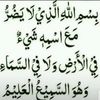 بِسْمِ اللَّهِ الَّذِي لَا يَضُرُّ
مَعَ اسْمِهِ شَيْءٌ
فِي الْأَرْضِ وَلَا فِي السَّمَاءِ
وَهُوَ السَّمِيعُ الْعَلِيمُ